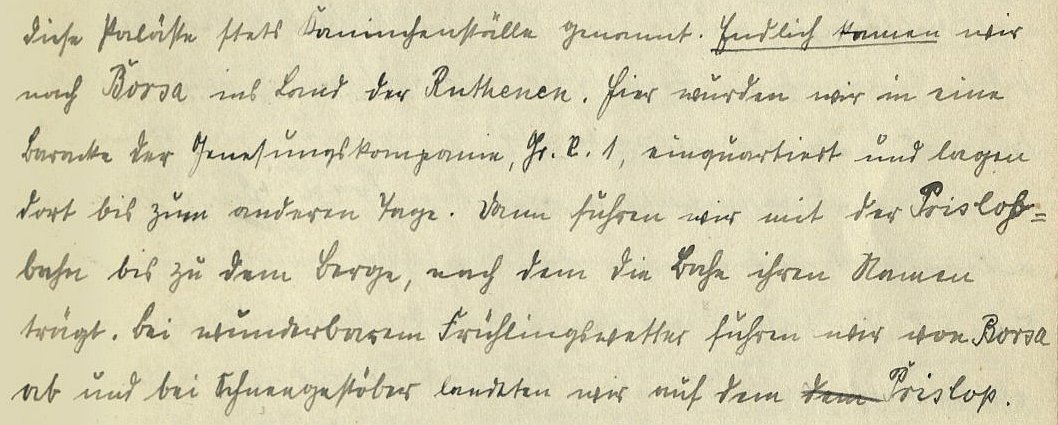 diese Paläste stets Kaninchenställe genannt. Endlich kamen wir
nach Borsa ins Land der Ruthenen. Hier wurden wir in eine
Baracke der Genesungskompanie, Gr. R. 1, einquartiert und lagen
dort bis zum anderen Tage. Dann fuhren wir mit der Prislop=
bahn bis zu dem Berge, nach dem die Bahn ihren Namen
trägt. Bei wunderbarem Frühlingswetter fuhren wir von Borsa
ab und bei Schneegestöber landeten wir auf dem dem Prislop.